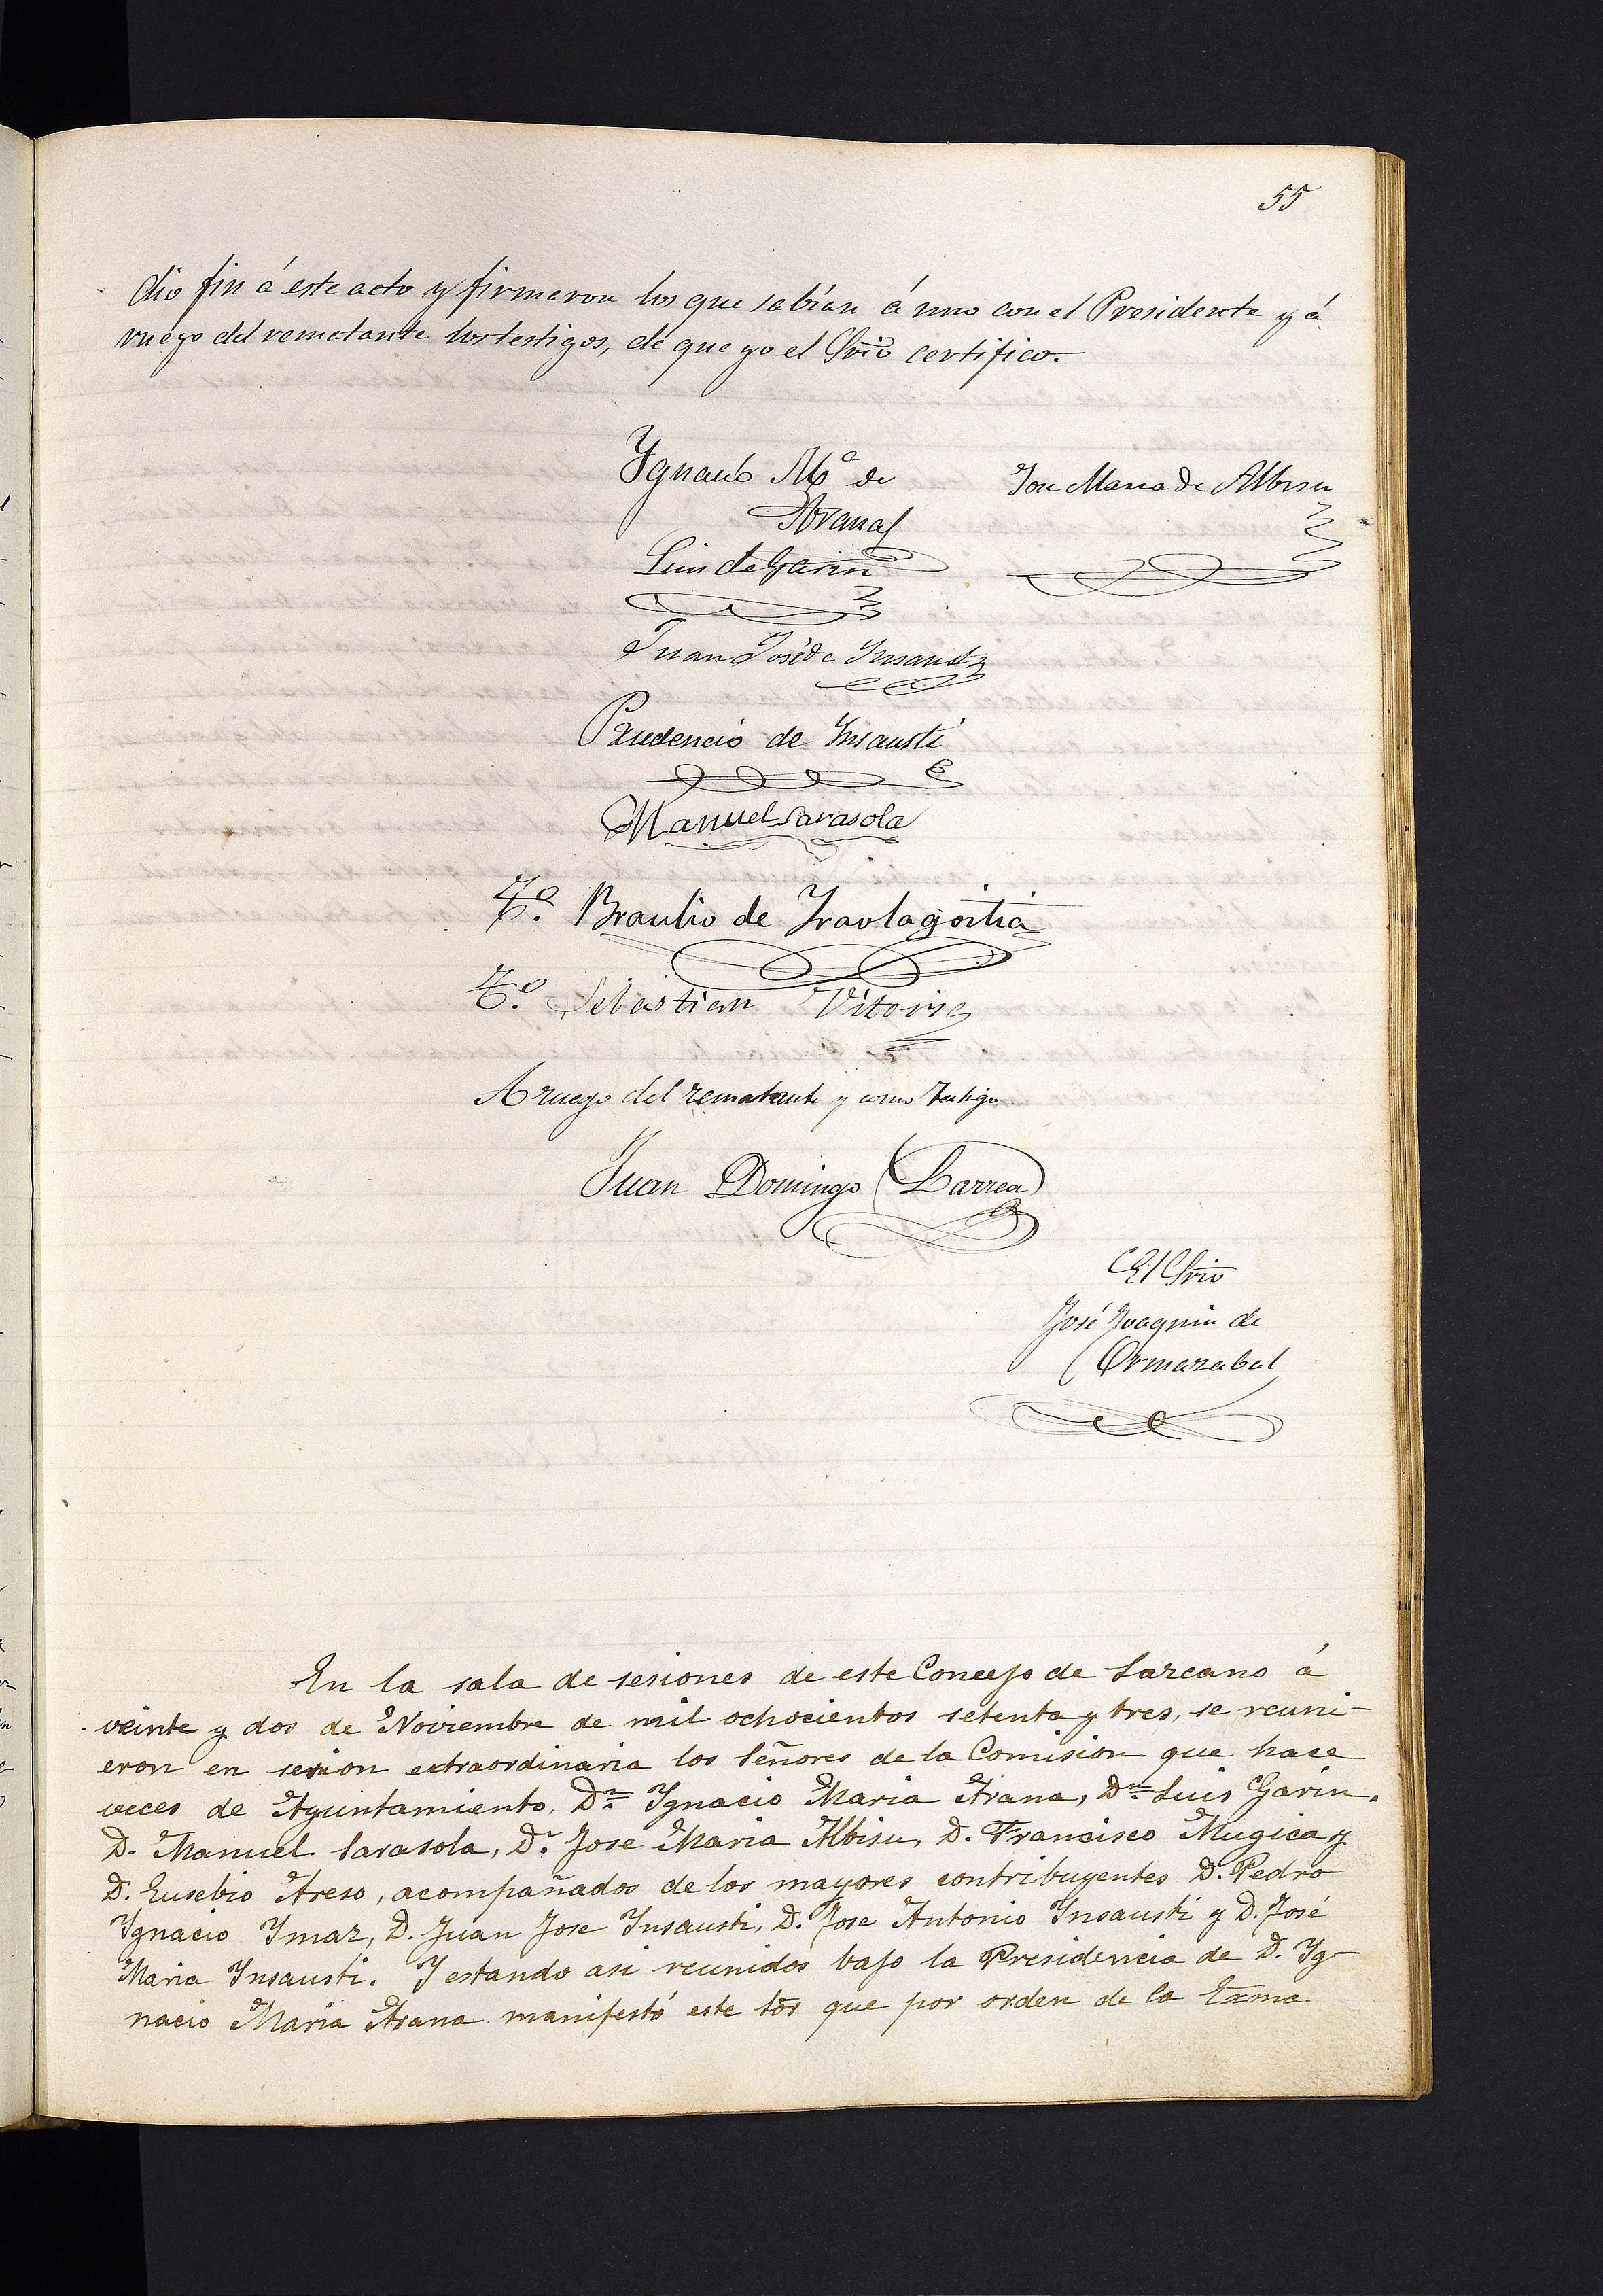 55
dio fin á este acto y firmaron los que sabían á uno con el Presidente y á
ruego del rematante los testigos, de que yo el Srio certifico.
Ygnacio Mª de
Arana
Jose Maria de Albisu
Luis de Garin
Juan José de Insausti
Prudencio de Insausti
Manuel Sarasola
Tº. Braulio de Iraolagoitia
Tº. Sebastian Vitoria
A ruego del rematante y como testigo
Juan Domingo Larrea
El Srio
José Joaquin de
Ormazabal
En la sala de sesiones de este Concejo de Lazcano á
veinte y dos de Noviembre de mil ochocientos setenta y tres, se reuni-
eron en sesion extraordinaria los Señores de la Comision que hace
veces de Ayuntamiento, Dn. Ygnacio Maria Arana, Dn. Luis Garin,
D. Manuel Sarasola, D. Jose Maria Albisu, D. Francisco Mugica y
D. Eusebio Areso, acompañados de los mayores contribuyentes D. Pedro
Ygnacio Ymaz, D. Juan Jose Insausti, D. Jose Antonio Insausti y D. José
Maria Insausti. Y estando asi reunidos bajo la Presidencia de D. Yg-
nacio Maria Arana manifestó este Sor que por orden de la Exma